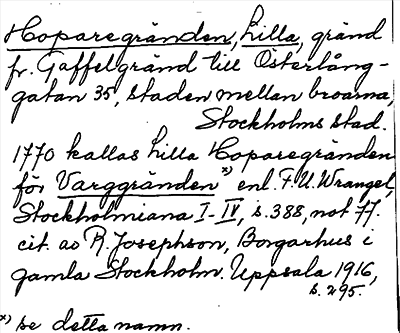 Hoparegränden, Lilla, gränd
fr. Gaffelgränd till Österlång-
gatan 35, staden mellan broarna,
Stockholms stad.
1770 kallas Lilla Hoparegränden
för Varggränden x) enl. F. U. Wrangel,
Stockholmiana I-IV, s. 388, not 77.
cit. av R. Josephson, Borgarhus i
gamla Stockholm. Uppsala 1916,
s. 295.
x) se detta namn.